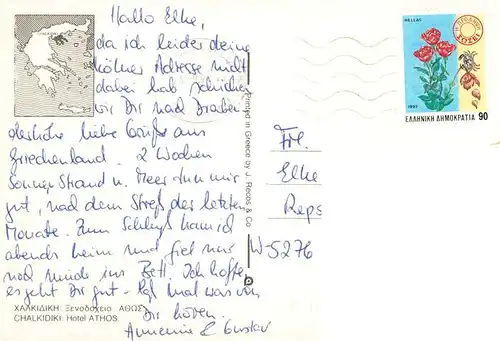 Hallo Elke,
da ich leider deine
Kölner Adresse nicht
dabei hab schicken
wir Dir nach Draben-
derhöhe liebe Grüße aus
Griechenland. 2 Wochen
Sonne Strand u. Meer tun mir
gut, nach dem Streß der letzten
Monate. Zum Schluß kam ich
abends heim und fiel nur
noch müde ins Bett. Ich hoffe
es geht Dir gut - laß mal was von
Dir hören.
Annemie & Gustav
ΧΑΛΚΙΔΙΚΗ: Ξενοδοχείο ΑΘΩΣ
CHALKIDIKI: Hotel ATHOS
Printed in Greece by J. Rekos & Co
HELLAS
1992
ΕΛΛΗΝΙΚΗ ΔΗΜΟΚΡΑΤΙΑ 90
Frl.
Elke
Reps
W-5276